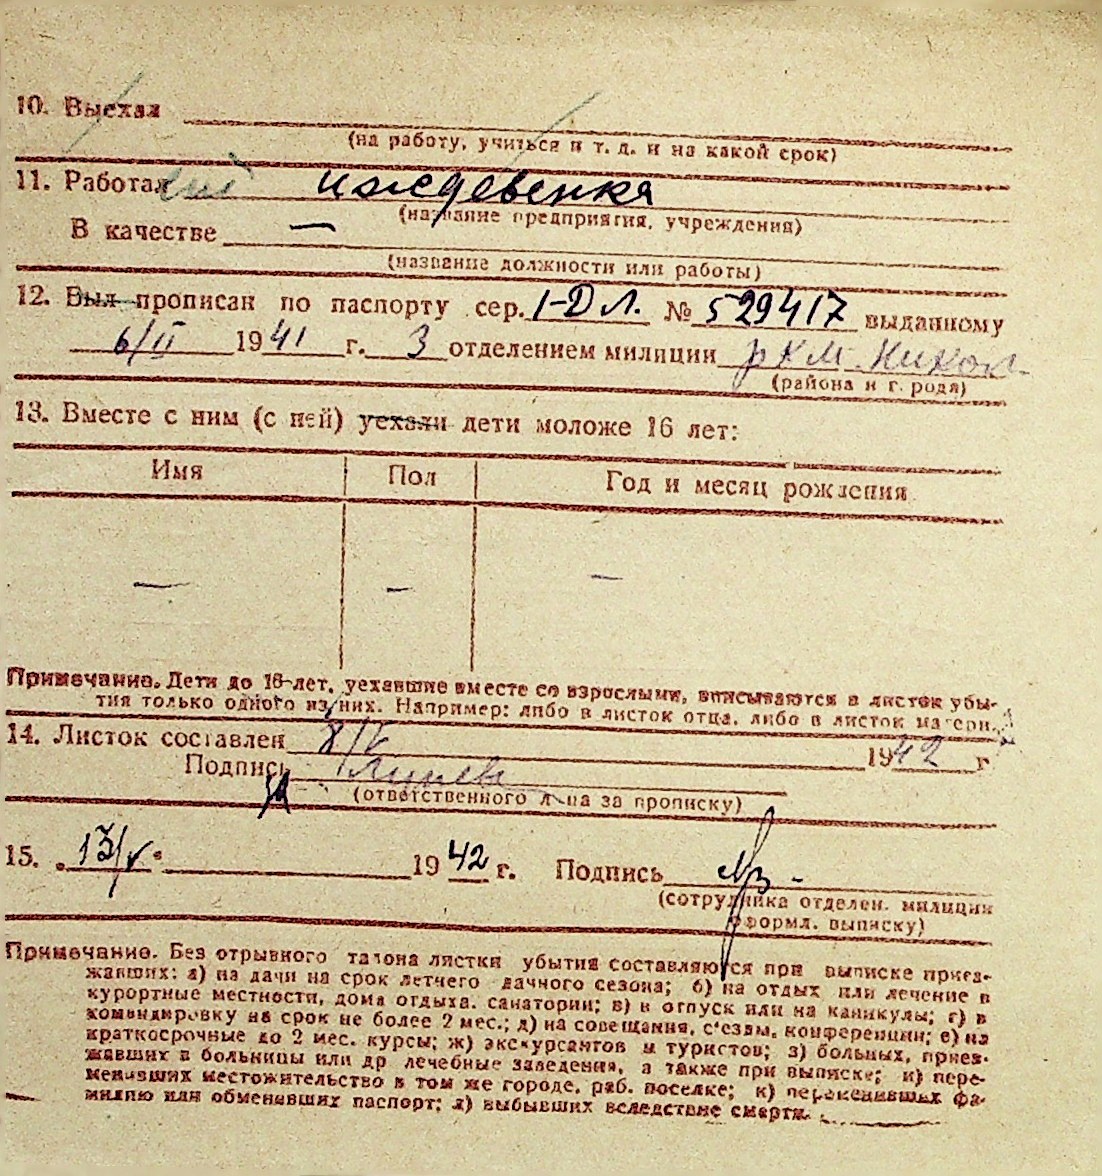 10. Выехал
(на работу, учиться и т. д. и на какой срок)
11. Работал иждевенка
(название предприятия, учреждения)
В качестве —
(название должности или работы)
12. Был прописан по паспорту сер. I-ДЛ. № 529417 выданному
6/II 1941 г. 3 отделением милиции РКМ Никол
(района и г. рода)
13. Вместе с ним (с ней) уехали дети моложе 16 лет:
Имя Пол Год и месяц рождения
— — —
Примечание. Дети до 16-лет, уехавшие вместе со взрослыми, вписываются в листок убы-
тия только одного из них. Например: либо в листок отца, либо в листок матери.
14. Листок составлен 8/V 1942 г
Подпись
(ответственного лица за прописку)
15. „13/V“ 1942 г. Подпись
(сотрудника отделен. милиции
оформл. выписку)
Примечание. Без отрывного талона листки убытия составляются при выписке приез-
жавших: а) на дачи на срок летнего дачного сезона; б) на отдых или лечение в
курортные местности, дома отдыха, санатории; в) в отпуск или на каникулы; г) в
командировку на срок не более 2 мес.; д) на совещания, с'езды, конференции; е) на
краткосрочные до 2 мес. курсы; ж) экскурсантов и туристов; з) больных, приез-
жавших в больницы или др лечебные заведения, а также при выписке; и) пере-
менивших местожительство в том же городе, раб. поселке; к) переменивших фа-
милию или обменявших паспорт; л) выбывших вследствие смерти.